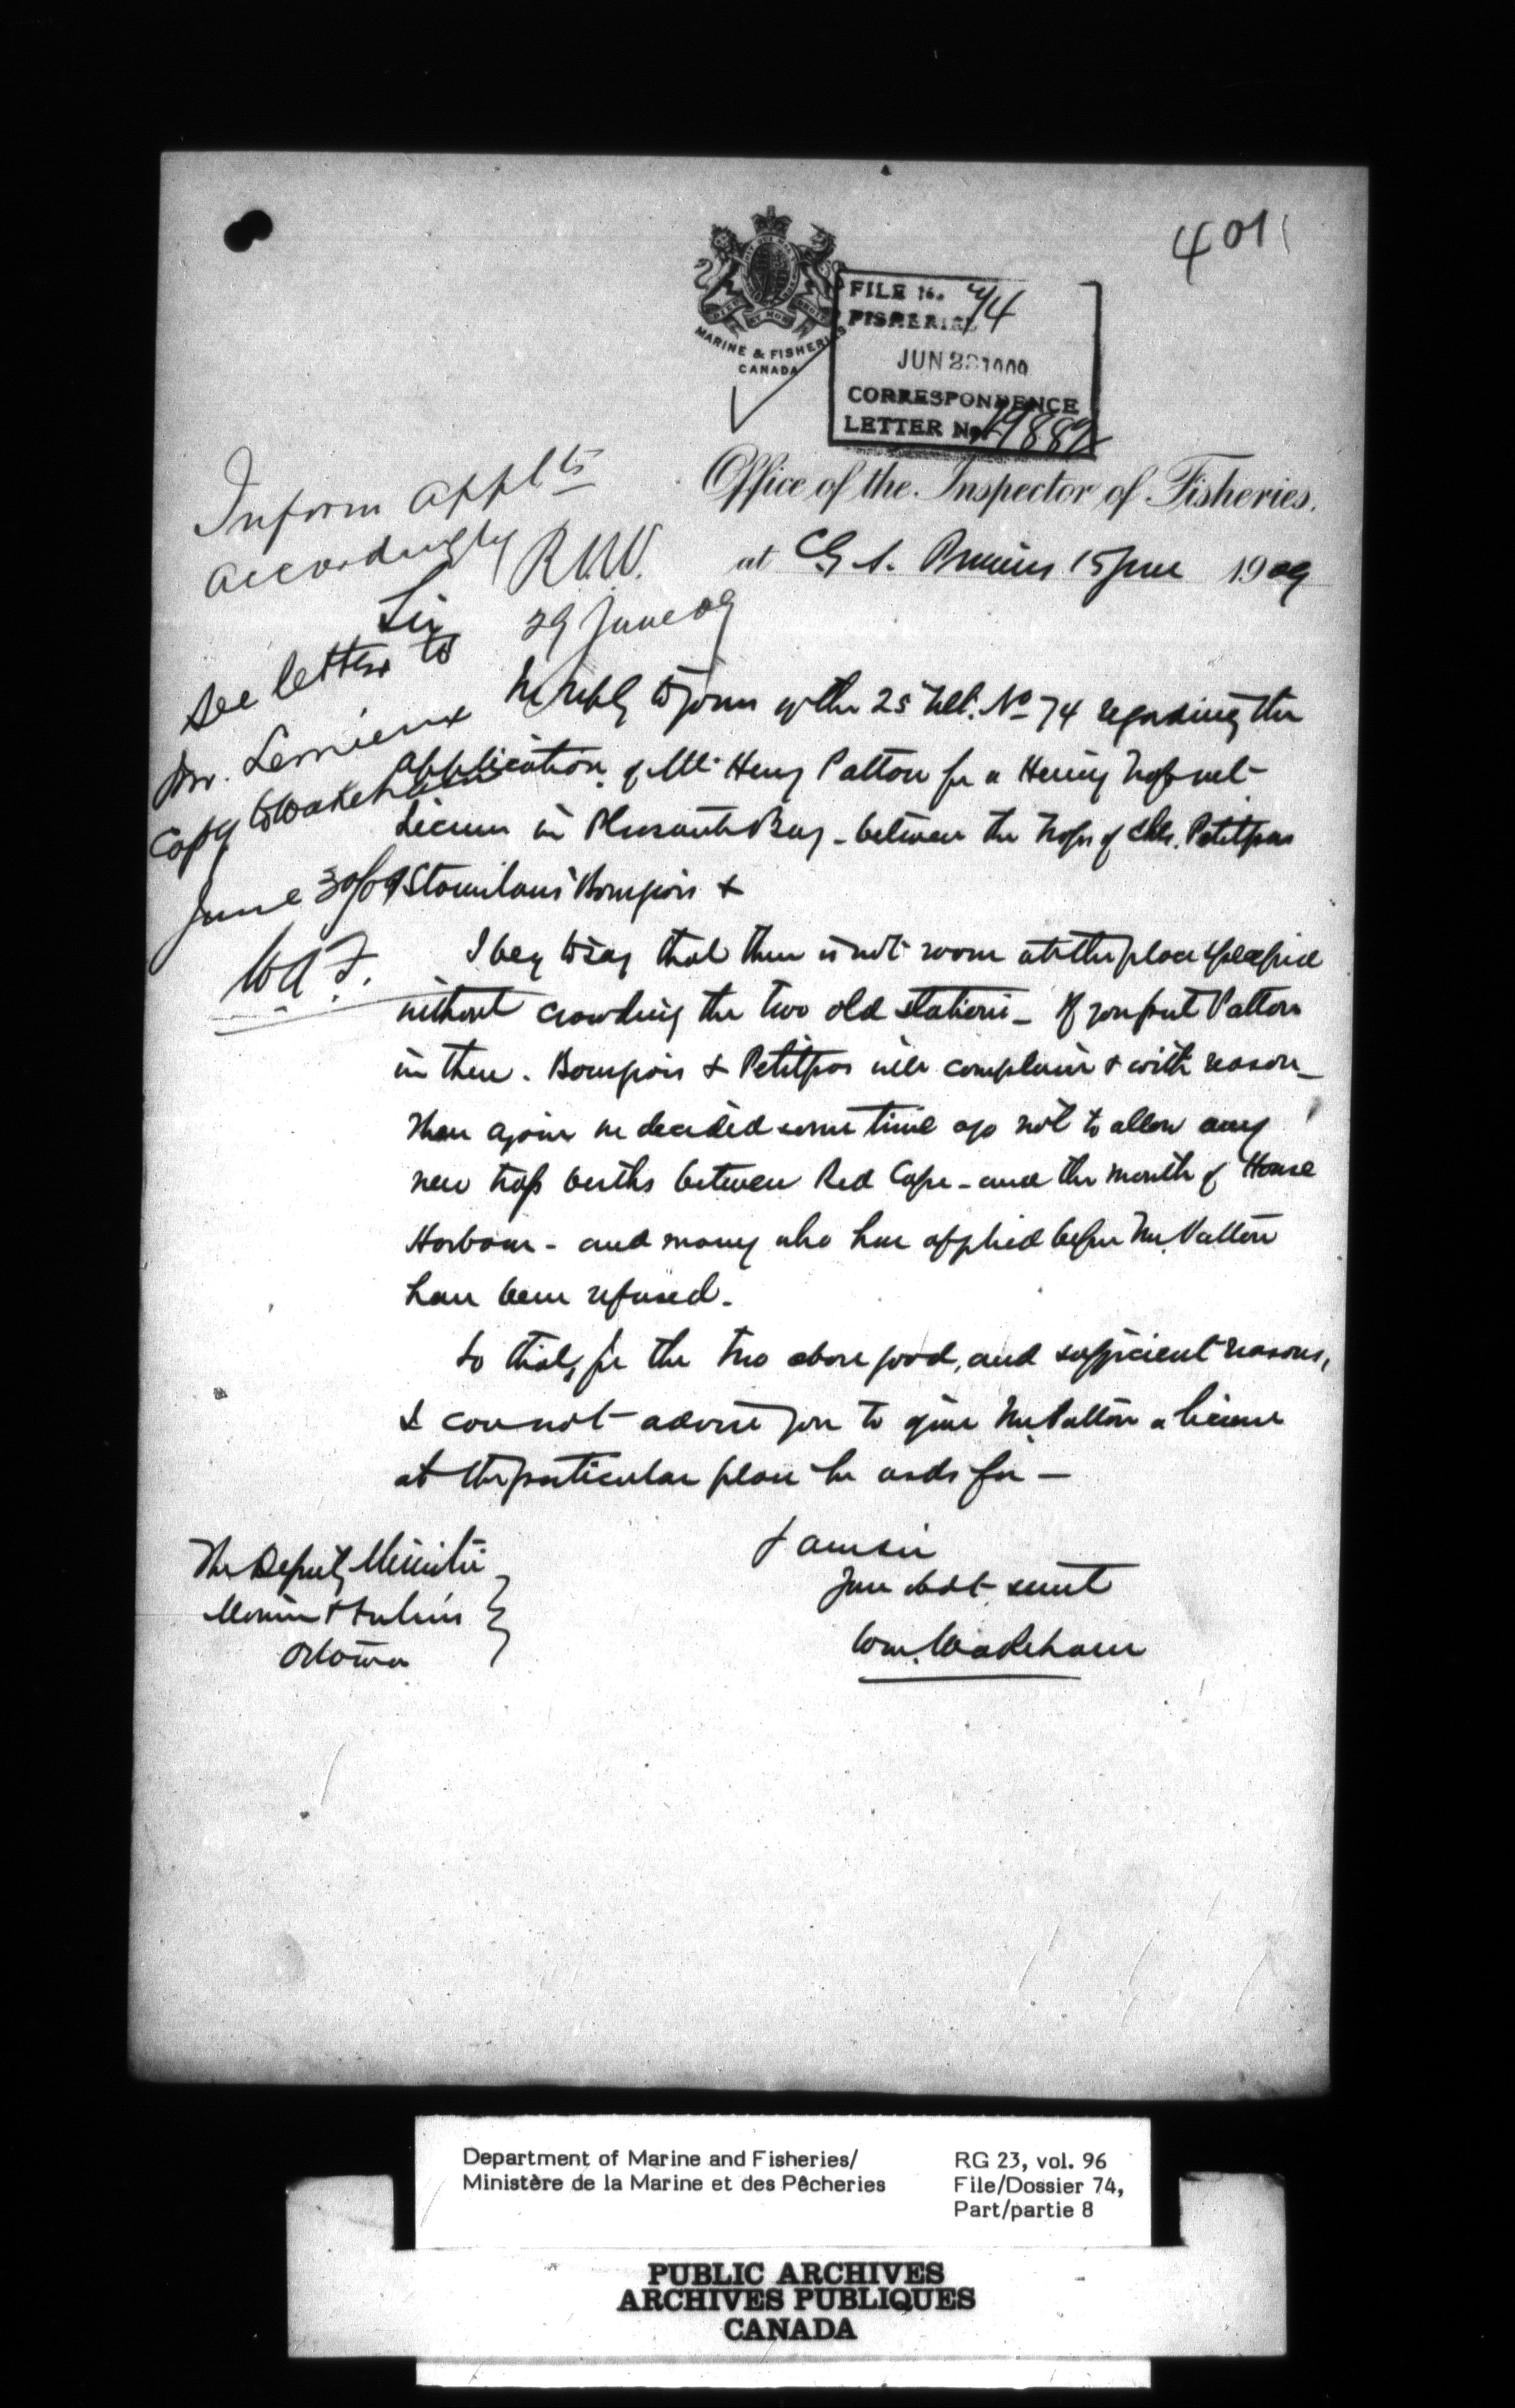 401
MARINE & FISHERIES
CANADA
FILE No. 74
FISHERIES
JUN 28 1909
CORRESPONDENCE
LETTER No.
Office of the Inspector of Fisheries.
at C.G.S. Princess 15 June 1909
Inform applts
accordingly
R.N.V.
29 June 09
See letter to
Mr. Lemieux
Copy to Wakeham
June 30/09
W A F.
Sir
In reply to yours of the 25 ult. No 74 regarding the
application of Mr. Henry Patton for a Herring trap net
License in Pleasant Bay - between the traps of Chs. Petitpas
Bourgeois &
I beg to say that there is not room at the place specified
without crowding the two old stations - If you put Patton
in there. Bourgeois & Petitpas will complain & with reason -
Then again we decided some time ago not to allow any
new trap berths between Red Cape - and the mouth of House
Harbour - and many who have applied before Mr. Patton
have been refused.
So that, for the two above good, and sufficient reasons,
I cannot advise you to give Mr. Patton a license
at the particular place he asks for -
I am sir
Your obdt. servt
Wm. Wakeham
The Deputy Minister
Marine & Fisheries
Ottawa
Department of Marine and Fisheries/
Ministère de la Marine et des Pêcheries
RG 23, vol. 96
File/Dossier 74,
Part/partie 8
PUBLIC ARCHIVES
ARCHIVES PUBLIQUES
CANADA